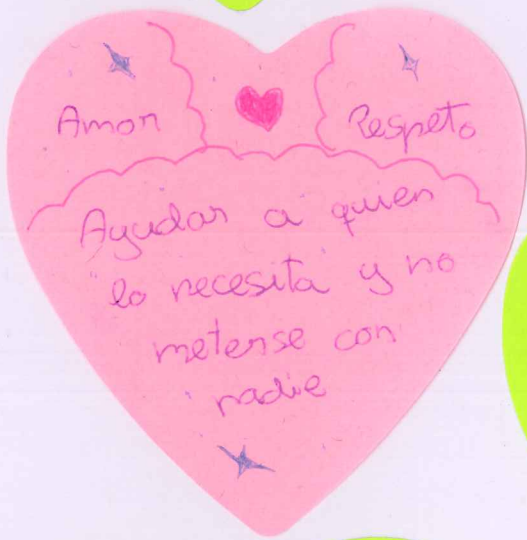 Amor
Respeto
Ayudar a quien
lo necesita y no
meterse con
nadie